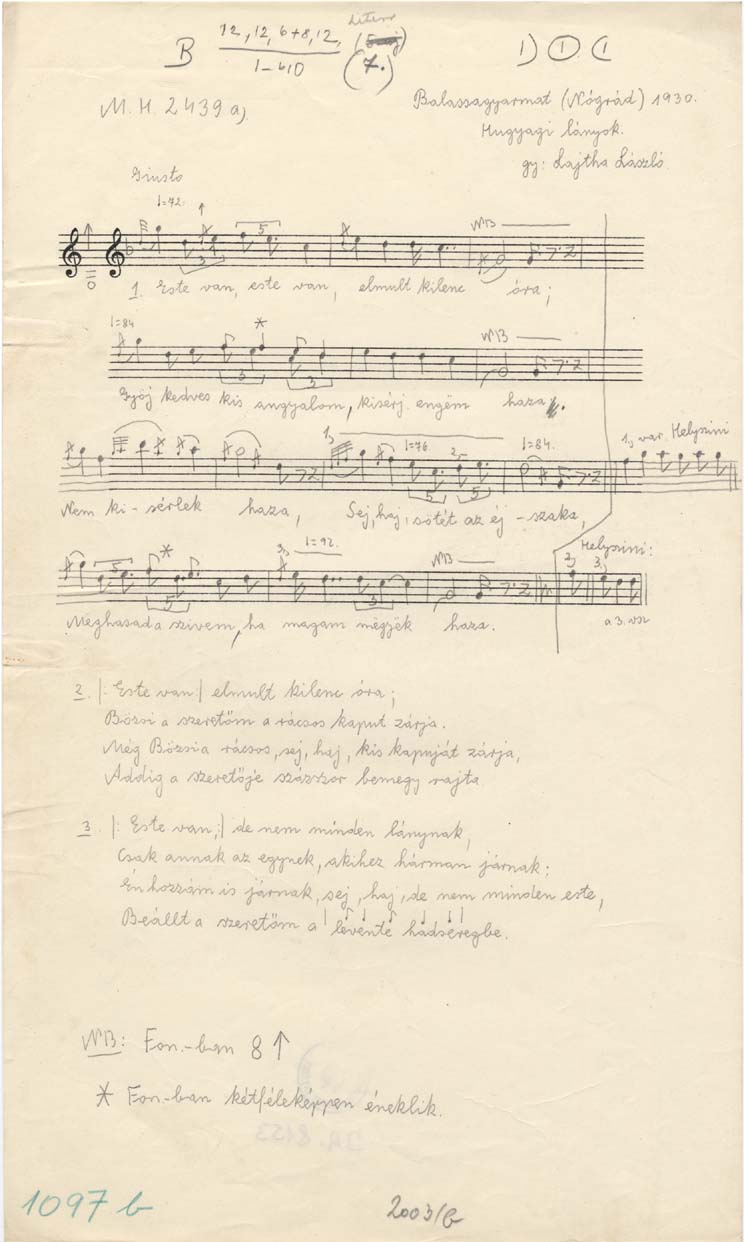 B 12, 12, 6+8, 12,
1–b10
(7.)
1) ① (1
M.H. 2439 a).
Balassagyarmat (Nógrád) 1930.
Hugyagi lányok.
gy: Lajtha László.
Giusto
♩=72.
5
3
NB
1. Este van, este van, elmult kilenc óra;
♩=84
*
NB
3
3
Gyöj kedves kis angyalom, kisérj engëm haza.
1,
♩=76.
2,
♩=84.
1, var. Helyszini
5
5
Nem ki- sérlek haza, Sej, haj, sötét az éj - szaka,
5
*
3,
♩=92.
NB
Helyszini:
3,
3,
5
3
Meghasad a szivem, ha magam mëgyëk haza.
a 3. vsz
2. |: Este van :| elmult kilenc óra;
Bözsi a szeretőm a rácsos kaput zárja.
Még Bözsi a rácsos, sej, haj, kis kapuját zárja,
Addig a szeretője százszor bemegy rajta.
3. |: Este van, :| de nem minden lánynak,
Csak annak az egynek, akihez hárman járnak;
Én hozzám is járnak, sej, haj, de nem minden este,
Beállt a szeretőm a levente hadseregbe.
NB: Fon.-ban 8 ↑
* Fon.-ban kétféleképpen éneklik.
1097 b
2003/b